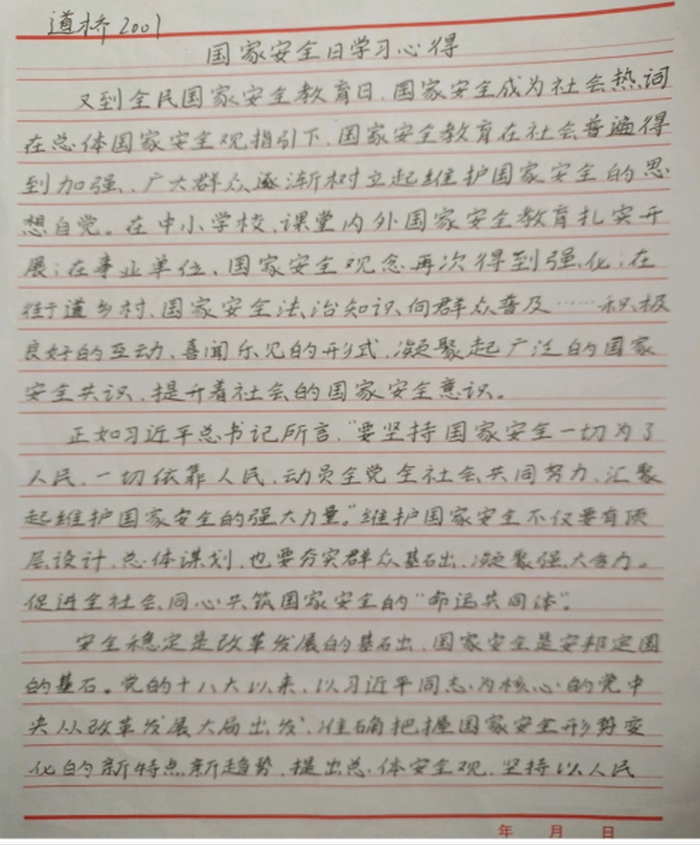 道桥2001
国家安全日学习心得
又到全民国家安全教育日,国家安全成为社会热词
在总体国家安全观指引下,国家安全教育在社会普遍得
到加强、广大群众逐渐树立起维护国家安全的思
想自觉。在中小学校,课堂内外国家安全教育扎实开
展;在事业单位、国家安全观念再次得到强化;在
街道乡村、国家安全法治知识向群众普及……积极
良好的互动、喜闻乐见的形式,凝聚起广泛的国家
安全共识、提升着社会的国家安全意识。
正如习近平总书记所言,“要坚持国家安全一切为了
人民、一切依靠人民,动员全党全社会共同努力,汇聚
起维护国家安全的强大力量。”维护国家安全不仅要有顶
层设计、总体谋划,也要夯实群众基础,凝聚强大合力。
促进全社会同心共筑国家安全的“命运共同体”。
安全稳定是改革发展的基础,国家安全是安邦定国
的基石。党的十八大以来,以习近平同志为核心的党中
央从改革发展大局出发,准确把握国家安全形势变
化的新特点新趋势,提出总体安全观,坚持以人民
年 月 日